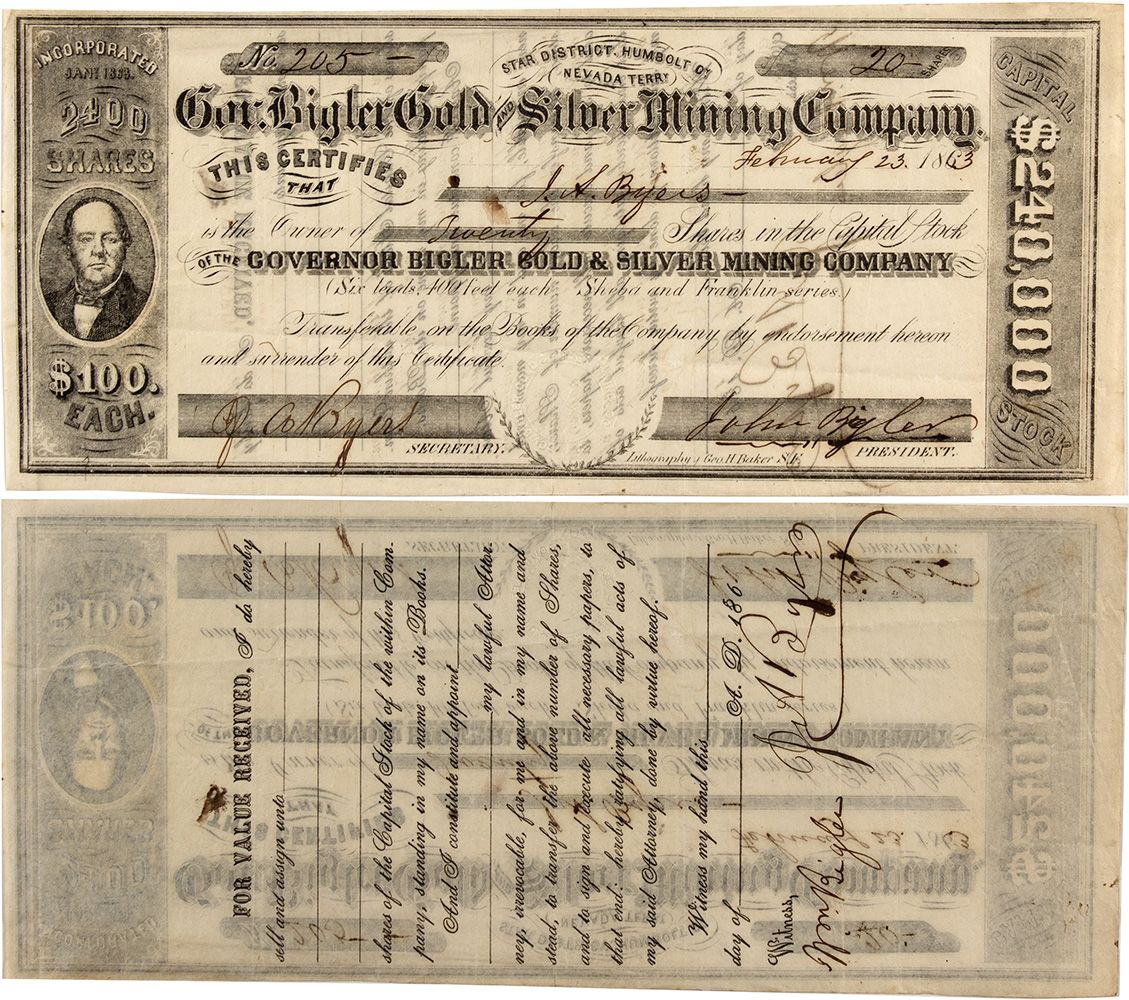 INCORPORATED
JANY 1863.
2400
SHARES
$100.
EACH.
No. 205 –
STAR DISTRICT, HUMBOLT Co
NEVADA TERRY
20 – SHARES
Gov. Bigler Gold AND Silver Mining Company.
February 23. 1863
THIS CERTIFIES
THAT
J. A. Byers –
is the Owner of Twenty Shares in the Capital Stock
OF THE GOVERNOR BIGLER GOLD & SILVER MINING COMPANY
(Six leads, 400 feet each Sheba and Franklin series.)
Transferable on the Books of the Company by endorsement hereon
and surrender of this Certificate.
J. A. Byers
SECRETARY.
John Bigler
PRESIDENT.
Lithography of Geo. H. Baker S.F.
CAPITAL
$240,000
STOCK
FOR VALUE RECEIVED, I do hereby
sell and assign unto
shares of the Capital Stock of the within Com-
pany, standing in my name on its Books.
And I constitute and appoint
my lawful Attor-
ney, irrevocable, for me and in my name and
stead, to transfer the above number of Shares,
and to sign and execute all necessary papers, to
that end: hereby ratifying all lawful acts of
my said Attorney, done by virtue hereof.
Witness my hand this
day of A. D. 186
Witness,
Wm Bigler
J. A. Byers